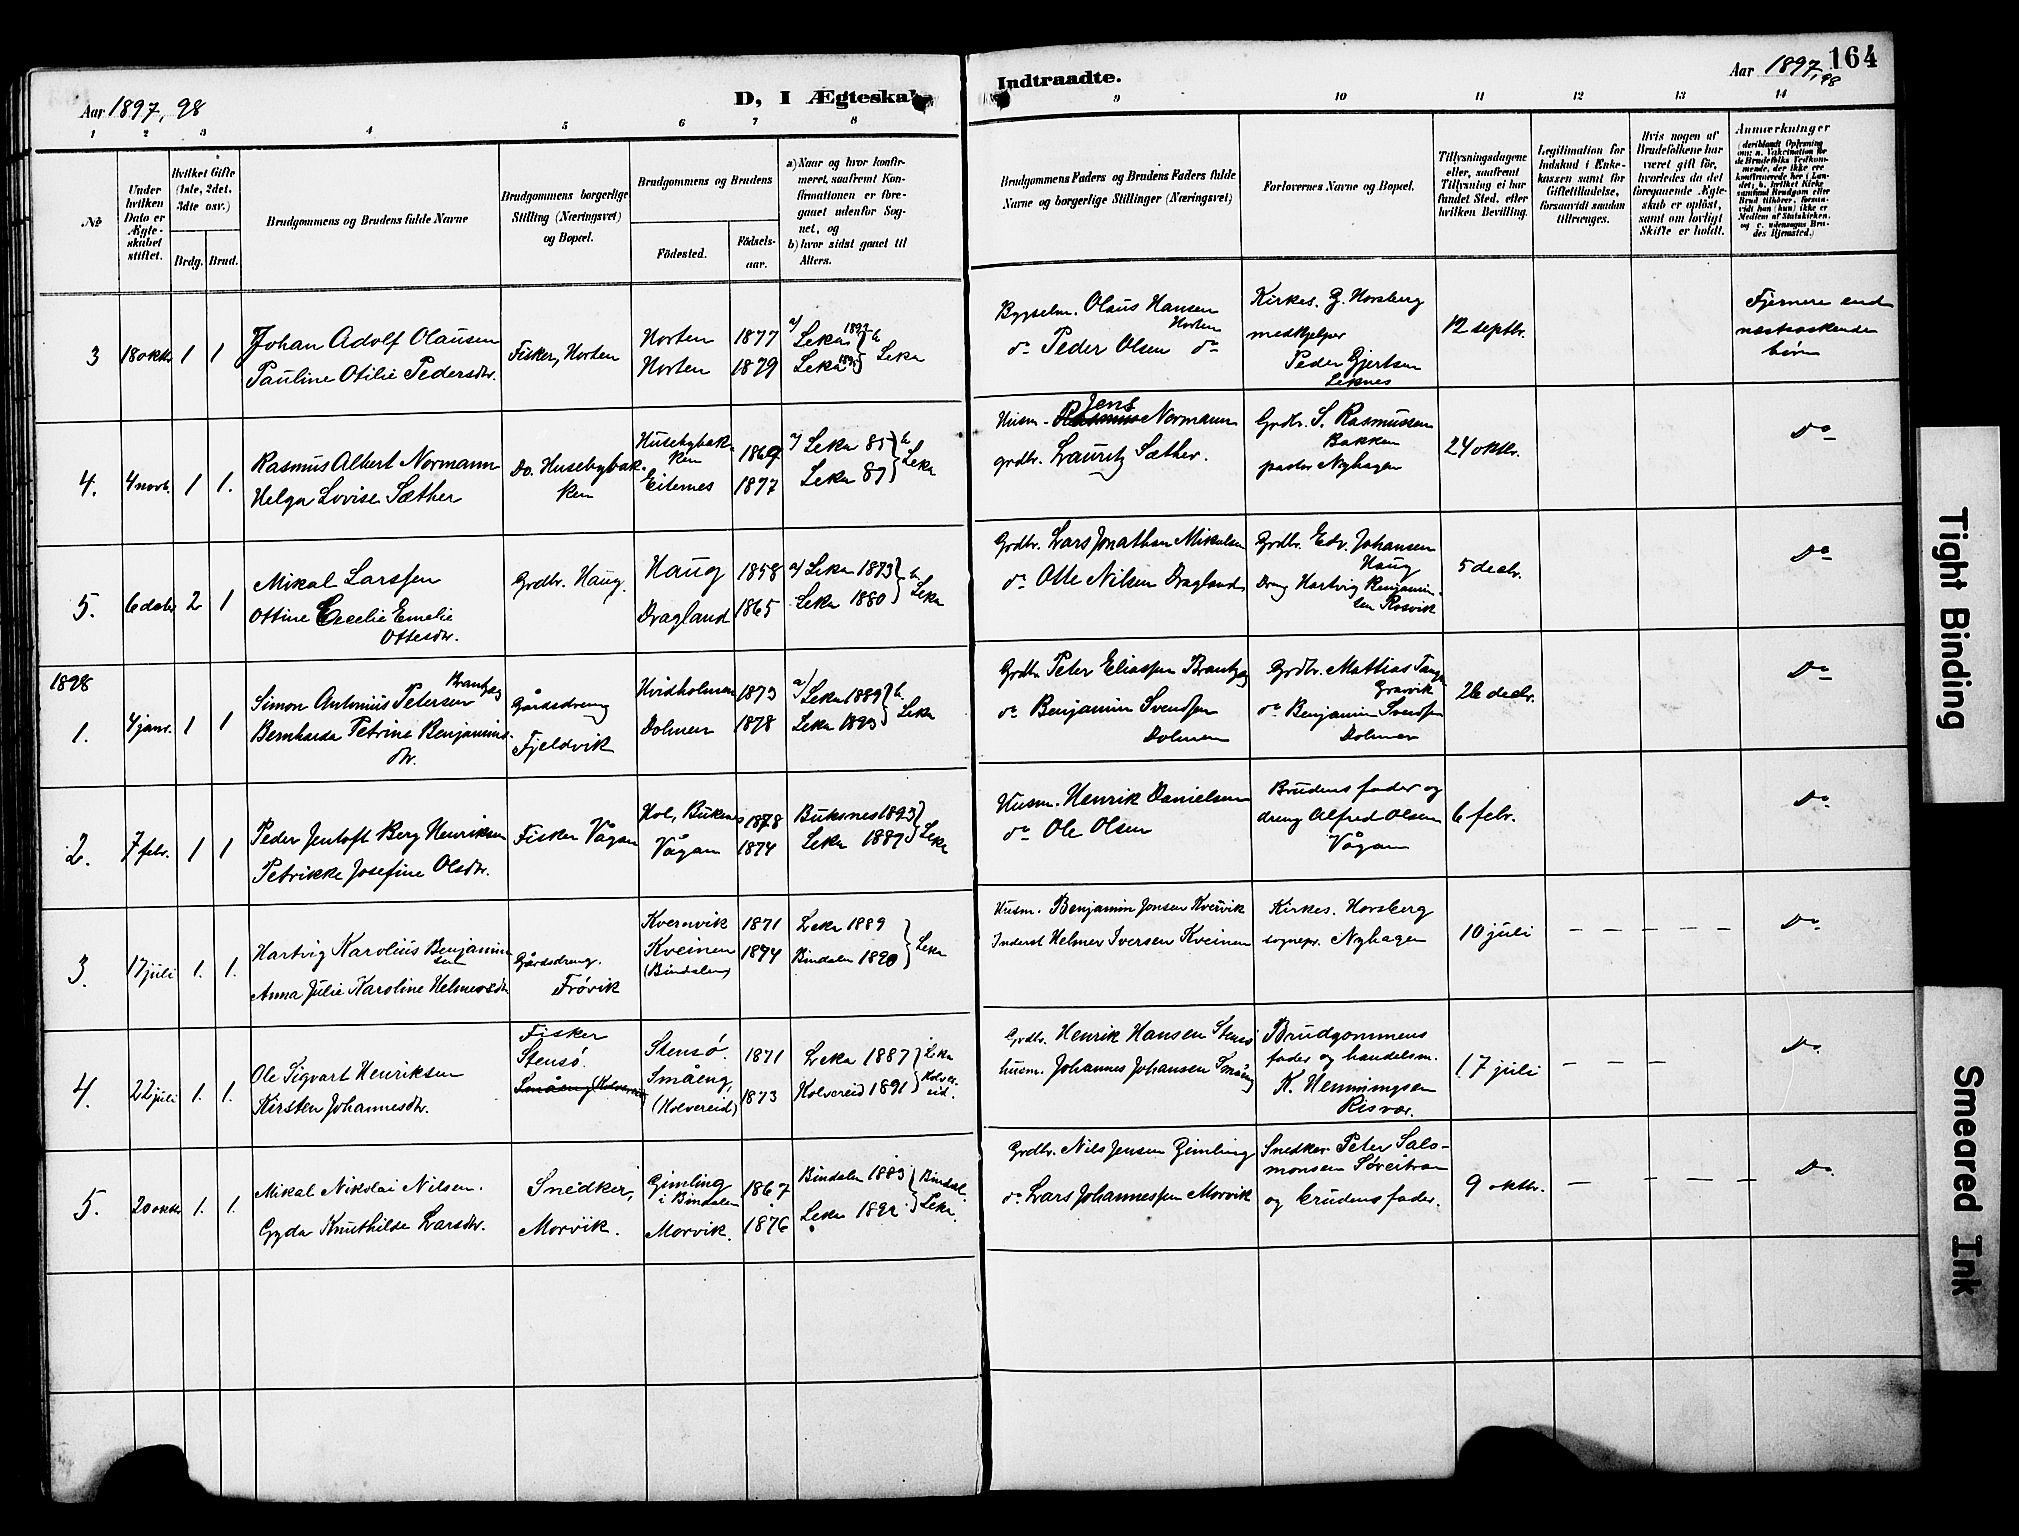 Aar 1897, 98
D, I Ægteskab
Indtraadte.
Aar 1897, 98
164
1 2 3 4 5 6 7 8 9 10 11 12 13 14
№
Under hvilken Dato er Ægteskabet stiftet.
Hvilket Gifte (1ste, 2det, 3die osv.)
Brdg. Brud.
Brudgommens og Brudens fulde Navne
Brudgommens borgerlige Stilling (Næringsvei) og Bopæl.
Brudgommens og Brudens
Fødested.
Fødsels-aar.
a) Naar og hvor konfirmeret, saafremt Konfirmationen er foregaaet udenfor Sognet, og
b) hvor sidst gaaet til Alters.
Brudgommens Faders og Brudens Faders fulde Navne og borgerlige Stillinger (Næringsvei)
Forlovernes Navne og Bopæl.
Tillysningsdagene eller, saafremt Tillysning ei har fundet Sted, efter hvilken Bevilling.
Legitimation for Indskud i Enkekassen samt for Giftetilladelse, forsaavidt saadan tiltrænges.
Hvis nogen af Brudefolkene har været gift før, hvorledes da det foregaaende Ægteskab er opløst, samt om lovligt Skifte er holdt.
Anmærkninger
3 18 oktr. 1 1
Johan Adolf Olausen
Pauline Otilie Pedersdtr.
Fisker, Horten
Horten 1877
Horten 1879
a) Leka
Leka
b Leka
Bygselm. Olaus Hansen
Horten
do Peder Olsen do
Kirkes. G. Horsberg
medhjelper
Peder Gjertsen
Leknes
12 septbr.
Fjernere end
næstsøskende
børn
4. 4 novb. 1 1.
Rasmus Albert Normann
Helga Lovise Sæther
Do. Husebybak
ken
Husebybak-
ken 1869
Eiternes 1877
a) Leka 85
Leka 87
b. Leka
Husm. Jens Normann
grdbr. Lauritz Sæther.
Grdbr. S. Rasmussen
Bakken
pastor Nyhagen
24 oktbr.
Do
5. 6 decbr 2 1
Mikal Larssen
Ottine Cecelie Emelie
Ottesdtr.
Grdbr. Haug.
Haug 1858
Dragland 1865
a) Leka 1873
Leka 1880
b. Leka
Grdbr. Lars Jonathan Mikalsen
do Otte Nilsen Dragland
Grdbr. Edv. Johansen
Haug
Dreng Hartvig Benjamin-
sen Rosvik
5 decbr.
Do
1898
1. 4 janr. 1 1
Simon Antonius Petersen Brantzeg
Bernharda Petrine Benjamins-
dtr.
Gårdsdreng
Fjeldvik
Hvidholmen 1873
Dolmen 1878
a) Leka 1889
Leka 1893
b. Leka
Grdbr Peter Eliassen Brantzeg
do Benjamin Svendsen
Dolmen
Grdbr. Mattias
Gravvik
do Benjamin Svendsen
Dolmen
26 decbr.
Do
2. 7 febr. 1 1
Peder Jentoft Berg Henriksen
Petrikke Josefine Olsdtr.
Fisker Vågan
Hol, Buksnes 1878
Vågan 1874
Buksnes 1893
Leka 1887
Leka
Husm. Henrik Danielsen
do Ole Olsen
Brudens fader og
dreng Alfred Olsen
Vågan
6 febr.
Do
3. 17 juli 1. 1.
Hartvig Karolius Benjamin
sen
Anna Julie Karoline Helmersdtr
Gårdsdreng.
Frøvik
Kvernvik 1871
Kveinen 1874
(Bindalen)
Leka 1889
Bindalen 1890
Leka
Husm. Benjamin Jonsen Kvernvik
Inderst Helmer Iversen Kveinen
Kirkes. Horsberg
sognepr. Nyhagen
10 juli
Do
4. 22 juli 1. 1.
Ole Sigvart Henriksen
Kirsten Johannesdtr.
Fisker
Stensø.
Småeng (Kolvereid)
Stensø. 1871
Småeng, 1873
(Kolvereid)
Leka 1887
Kolvereid 1891
Leka
Kolver-
eid.
Grdbr. Henrik Hansen Stensø
husm. Johannes Johansen Småeng
Brudgommens
fader og handelsm.
K. Henningsen
Risvær.
17 juli
Do.
5. 20 oktbr 1. 1.
Mikal Nikolai Nilsen.
Gyda Knuthilde Larsdtr.
Snedker,
Morvik.
Gimling 1867
i Bindalen
Morvik. 1876
Bindalen 1883
Leka 1892
Bindal.
Leka.
Grdbr. Nils Jensen Gimling
do Lars Johannessen Morvik
Snedker Peter Salo-
monsen
og brudens fader.
9 oktbr.
Do.
Tight Binding
Smeared Ink